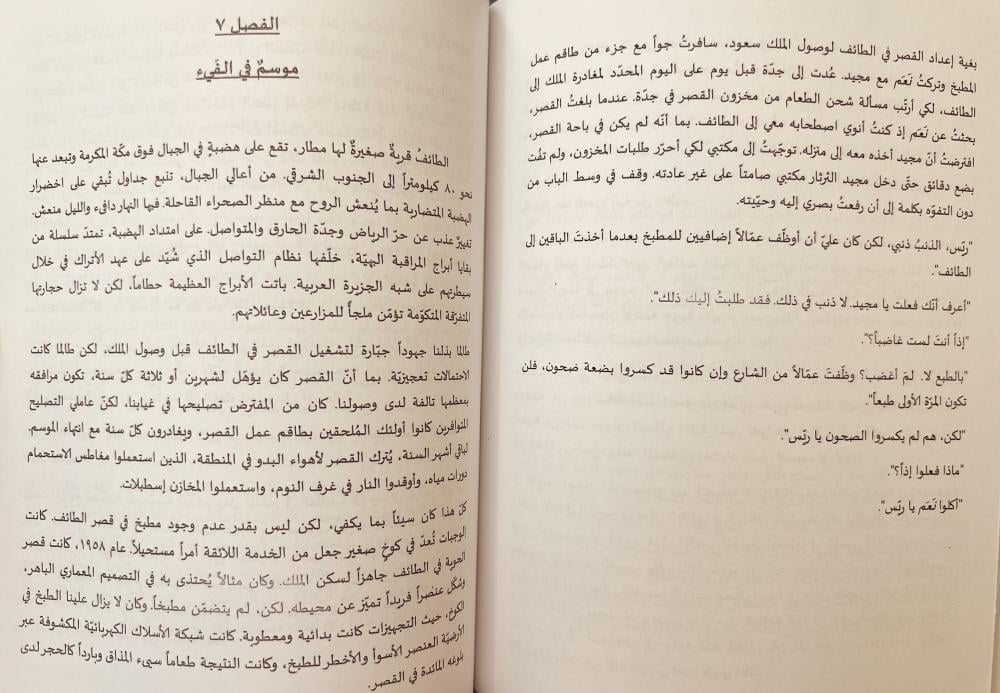 بغية إعداد القصر في الطائف لوصول الملك سعود، سافرتُ جواً مع جزء من طاقم عمل
المطبخ وتركتُ نَعَم مع مجيد. عُدت إلى جدّة قبل يوم على اليوم المحدّد لمغادرة الملك إلى
الطائف، لكي أرتّب مسألة شحن الطعام من مخزون القصر في جدّة. عندما بلغتُ القصر،
بحثتُ عن نَعَم إذ كنتُ أنوي اصطحابه معي إلى الطائف. بما أنّه لم يكن في باحة القصر،
افترضتُ أنّ مجيد أخذه معه إلى منزله. توجّهتُ إلى مكتبي لكي أحرّر طلبات المخزون، ولم تفُت
بضع دقائق حتّى دخل مجيد الثرثار مكتبي صامتاً على غير عادته. وقف في وسط الباب من
دون التفوّه بكلمة إلى أن رفعتُ بصري إليه وحيّيته.
"ريّس، الذنبُ ذنبي، لكن كان عليّ أن أوظّف عمّالاً إضافيين للمطبخ بعدما أخذتَ الباقين إلى
الطائف".
"أعرف أنّك فعلت يا مجيد. لا ذنب في ذلك. فقد طلبتُ إليك ذلك".
"إذاً أنتَ لست غاضباً؟".
"بالطبع لا. لمَ أغضب؟ وظّفتَ عمّالاً من الشارع وإن كانوا قد كسروا بضعة صحون، فلن
تكون المرّة الأولى طبعاً".
"لكن، هم لم يكسروا الصحون يا ريّس".
"ماذا فعلوا إذاً؟".
"أكلوا نَعَم يا ريّس".
الفصل ٧
موسمٌ في الفَيء
الطائفُ قريةٌ صغيرةٌ لها مطار، تقع على هضبةٍ في الجبال فوق مكّة المكرمة وتبعد عنها
نحو ٨٠ كيلومتراً إلى الجنوب الشرقي. من أعالي الجبال، تنبع جداول تُبقي على اخضرار
الهضبة المتضاربة بما يُنعش الروح مع منظر الصحراء القاحلة. فيها النهار دافىء والليل منعش.
تغييرٌ عذب عن حرّ الرياض وجدّة الحارق والمتواصل. على امتداد الهضبة، تمتدّ سلسلة من
بقايا أبراج المراقبة البهيّة، خلّفها نظام التواصل الذي شُيّد على عهد الأتراك في خلال
سيطرتهم على شبه الجزيرة العربية. باتت الأبراج العظيمة حطاماً، لكن لا تزال حجارتها
المتفرّقة المتكوّمة تؤمّن ملجأً للمزارعين وعائلاتهم.
طالما بذلنا جهوداً جبّارة لتشغيل القصر في الطائف قبل وصول الملك، لكن طالما كانت
الاحتمالات تعجيزيّة. بما أنّ القصر كان يؤهَل لشهرين أو ثلاثة كلّ سنة، تكون مرافقه
بمعظمها تالفة لدى وصولنا. كان من المفترض تصليحها في غيابنا، لكنّ عاملي التصليح
المتوافرين كانوا أولئك المُلحقين بطاقم عمل القصر، ويغادرون كلّ سنة مع انتهاء الموسم.
لباقي أشهر السنة، يُترك القصر لأهواء البدو في المنطقة، الذين استعملوا مغاطس الاستحمام
دورات مياه، وأوقدوا النار في غرف النوم، واستعملوا المخازن إسطبلات.
كلّ هذا كان سيئاً بما يكفي، لكن ليس بقدر عدم وجود مطبخ في قصر الطائف. كانت
الوجبات تُعدّ في كوخ صغير جعل من الخدمة اللائقة أمراً مستحيلاً. عام ١٩٥٨، كانت قصر
الحوية في الطائف جاهزاً لسكن الملك. وكان مثالاً يُحتذى به في التصميم المعماري الباهر،
وشكّل عنصراً فريداً تميّز عن محيطه. لكن، لم يتضمّن مطبخاً. وكان لا يزال علينا الطبخ في
الكوخ، حيث التجهيزات كانت بدائية ومعطوبة. كانت شبكة الأسلاك الكهربائيّة المكشوفة عبر
الأرضيّة العنصر الأسوأ والأخطر للطبخ، وكانت النتيجة طعاماً سيىء المذاق وبارداً كالحجر لدى
بلوغه المائدة في القصر.